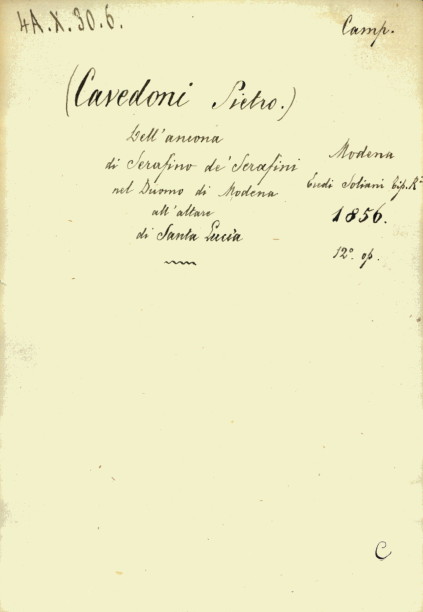 4A.X.30.6.
Camp.
(Cavedoni Pietro.)
Dell'ancona
di Serafino de' Serafini
nel Duomo di Modena
all'altare
di Santa Lucia
Modena
Eredi Soliani Tip. R.
1856.
12º. op.
C